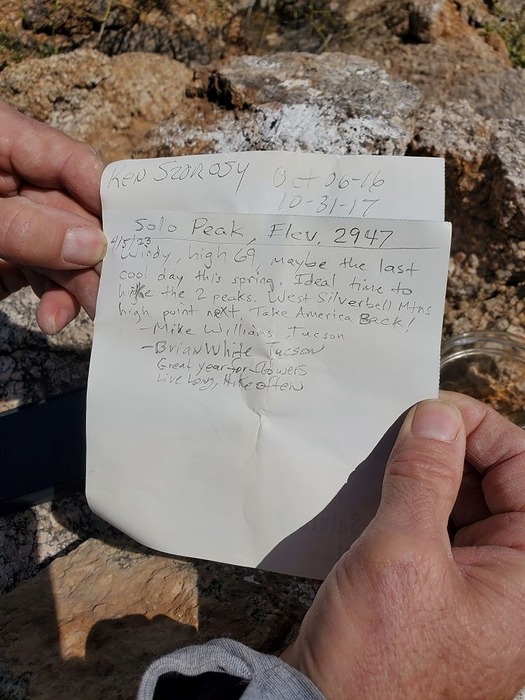 Ken Szorosy Oct 06-16
10-31-17
Solo Peak, Elev. 2947
4/5/23
Windy, high 69, maybe the last
cool day this spring. Ideal time to
hike the 2 peaks. West Silverbell Mtns
high point next. Take America Back!
- Mike Williams, Tucson
- Brian White Tucson
Great year for flowers
Live Long, Hike often